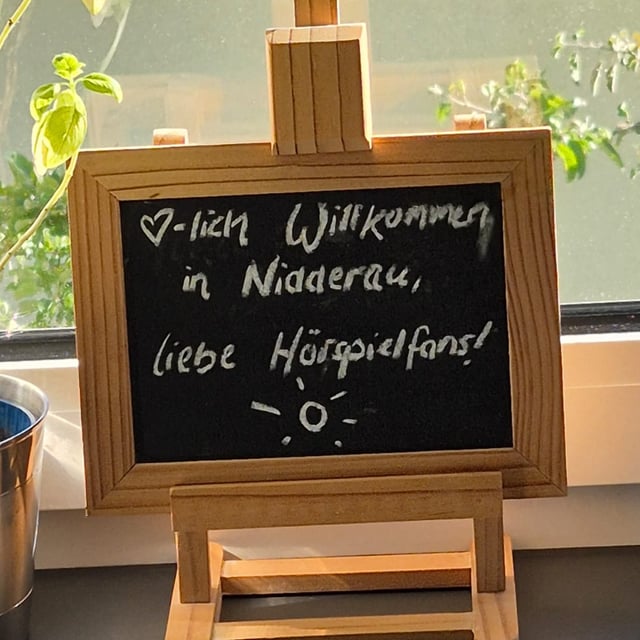 ♡-lich Willkommen
in Nidderau,
liebe Hörspielfans!